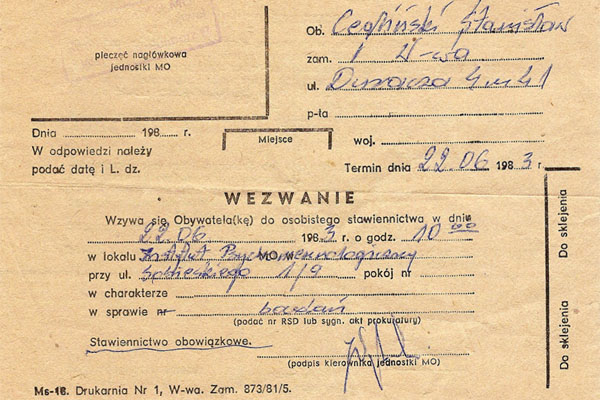 Ob. Cegliński Stanisław
pieczęć nagłówkowa
jednostki MO
zam. W-wa
ul. Duracza 4 m 41
p-ta
Dnia 198 r.
Miejsce
woj.
W odpowiedzi należy
podać datę i L. dz.
Termin dnia 22 06 1983 r.
WEZWANIE
Wzywa się Obywatela(kę) do osobistego stawiennictwa w dniu
22 06 1983 r. o godz. 10 00
w lokalu Instytut Psychoneurologiczny MO w
przy ul. Sobieskiego 1/9 pokój nr
w charakterze
w sprawie nr badań
(podać nr RSD lub sygn. akt prokuratury)
Stawiennictwo obowiązkowe.
(podpis kierownika jednostki MO)
Ms-16. Drukarnia Nr 1, W-wa. Zam. 873/81/5.
Do sklejenia
Do sklejenia